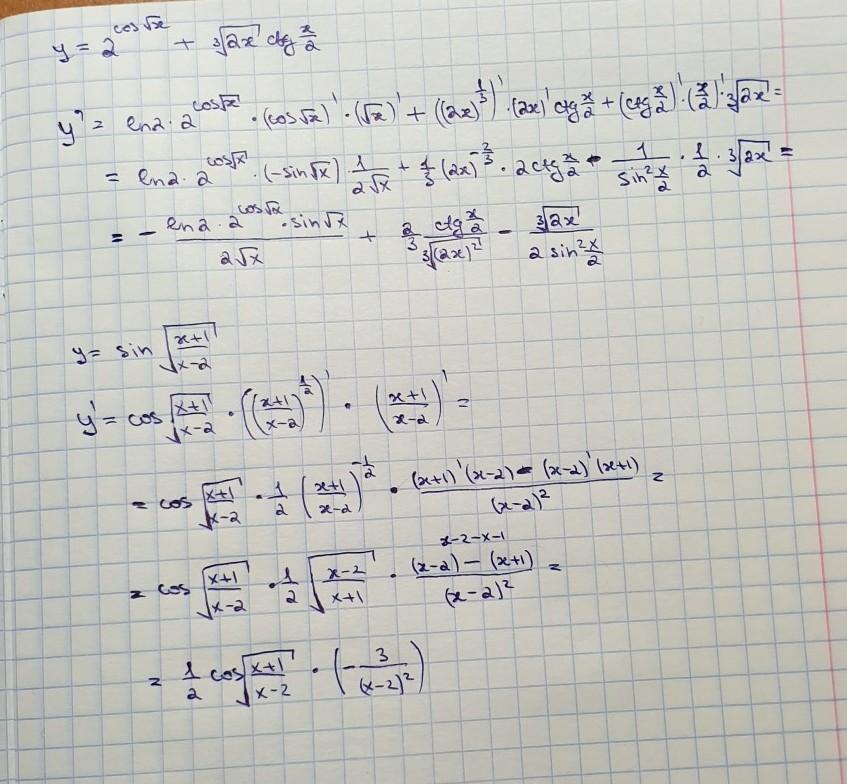 y = 2^{cos√x} + ∛(2x) ctg x/2
y' = ln2 · 2^{cos√x} · (cos√x)' · (√x)' + ((2x)^{1/3})' · (2x)' ctg x/2 + (ctg x/2)' · (x/2)' · ∛(2x) =
= ln2 · 2^{cos√x} · (-sin√x) · 1/(2√x) + 1/3 (2x)^{-2/3} · 2 ctg x/2 - 1/(sin² x/2) · 1/2 · ∛(2x) =
= - (ln2 · 2^{cos√x} · sin√x)/(2√x) + 2/3 (ctg x/2)/∛((2x)²) - ∛(2x)/(2 sin² x/2)
y = sin √((x+1)/(x-2))
y' = cos √((x+1)/(x-2)) · (((x+1)/(x-2))^{1/2})' · ((x+1)/(x-2))' =
= cos √((x+1)/(x-2)) · 1/2 ((x+1)/(x-2))^{-1/2} · ((x+1)'(x-2) - (x-2)'(x+1))/(x-2)² =
x-2-x-1
= cos √((x+1)/(x-2)) · 1/2 √((x-2)/(x+1)) · ((x-2) - (x+1))/(x-2)² =
= 1/2 cos √((x+1)/(x-2)) · (- 3/(x-2)²)